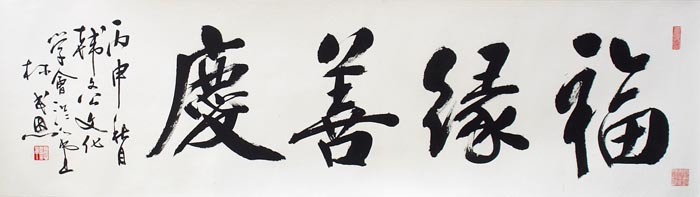 福緣善慶
丙申秋月
韓文公文化
学會
林